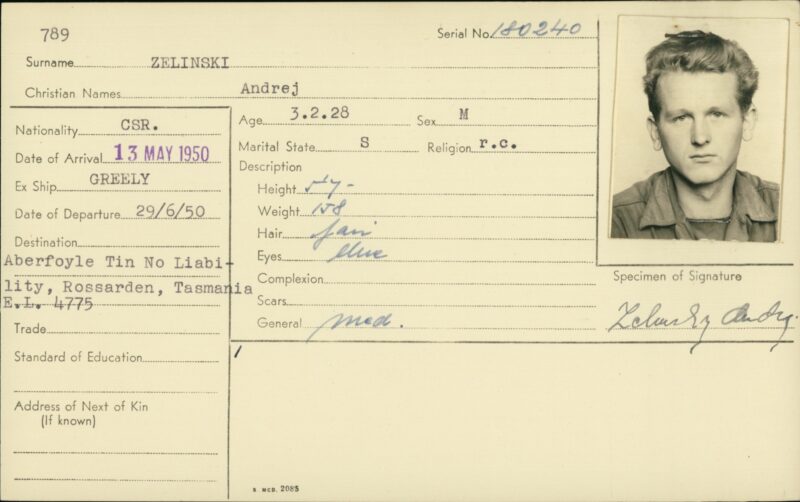 789
Serial No. 180240
Surname ZELINSKI
Christian Names Andrej
Nationality CSR.
Date of Arrival 13 MAY 1950
Ex Ship GREELY
Date of Departure 29/6/50
Destination
Aberfoyle Tin No Liabi-
lity, Rossarden, Tasmania
E.I. 4775
Trade
Standard of Education
Address of Next of Kin
(If known)
Age 3.2.28 Sex M
Marital State S Religion r.c.
Description
Height
Weight 158
Hair fair
Eyes blue
Complexion
Scars
General med.
Specimen of Signature
Zelinsky Andrej
S MCD. 2085